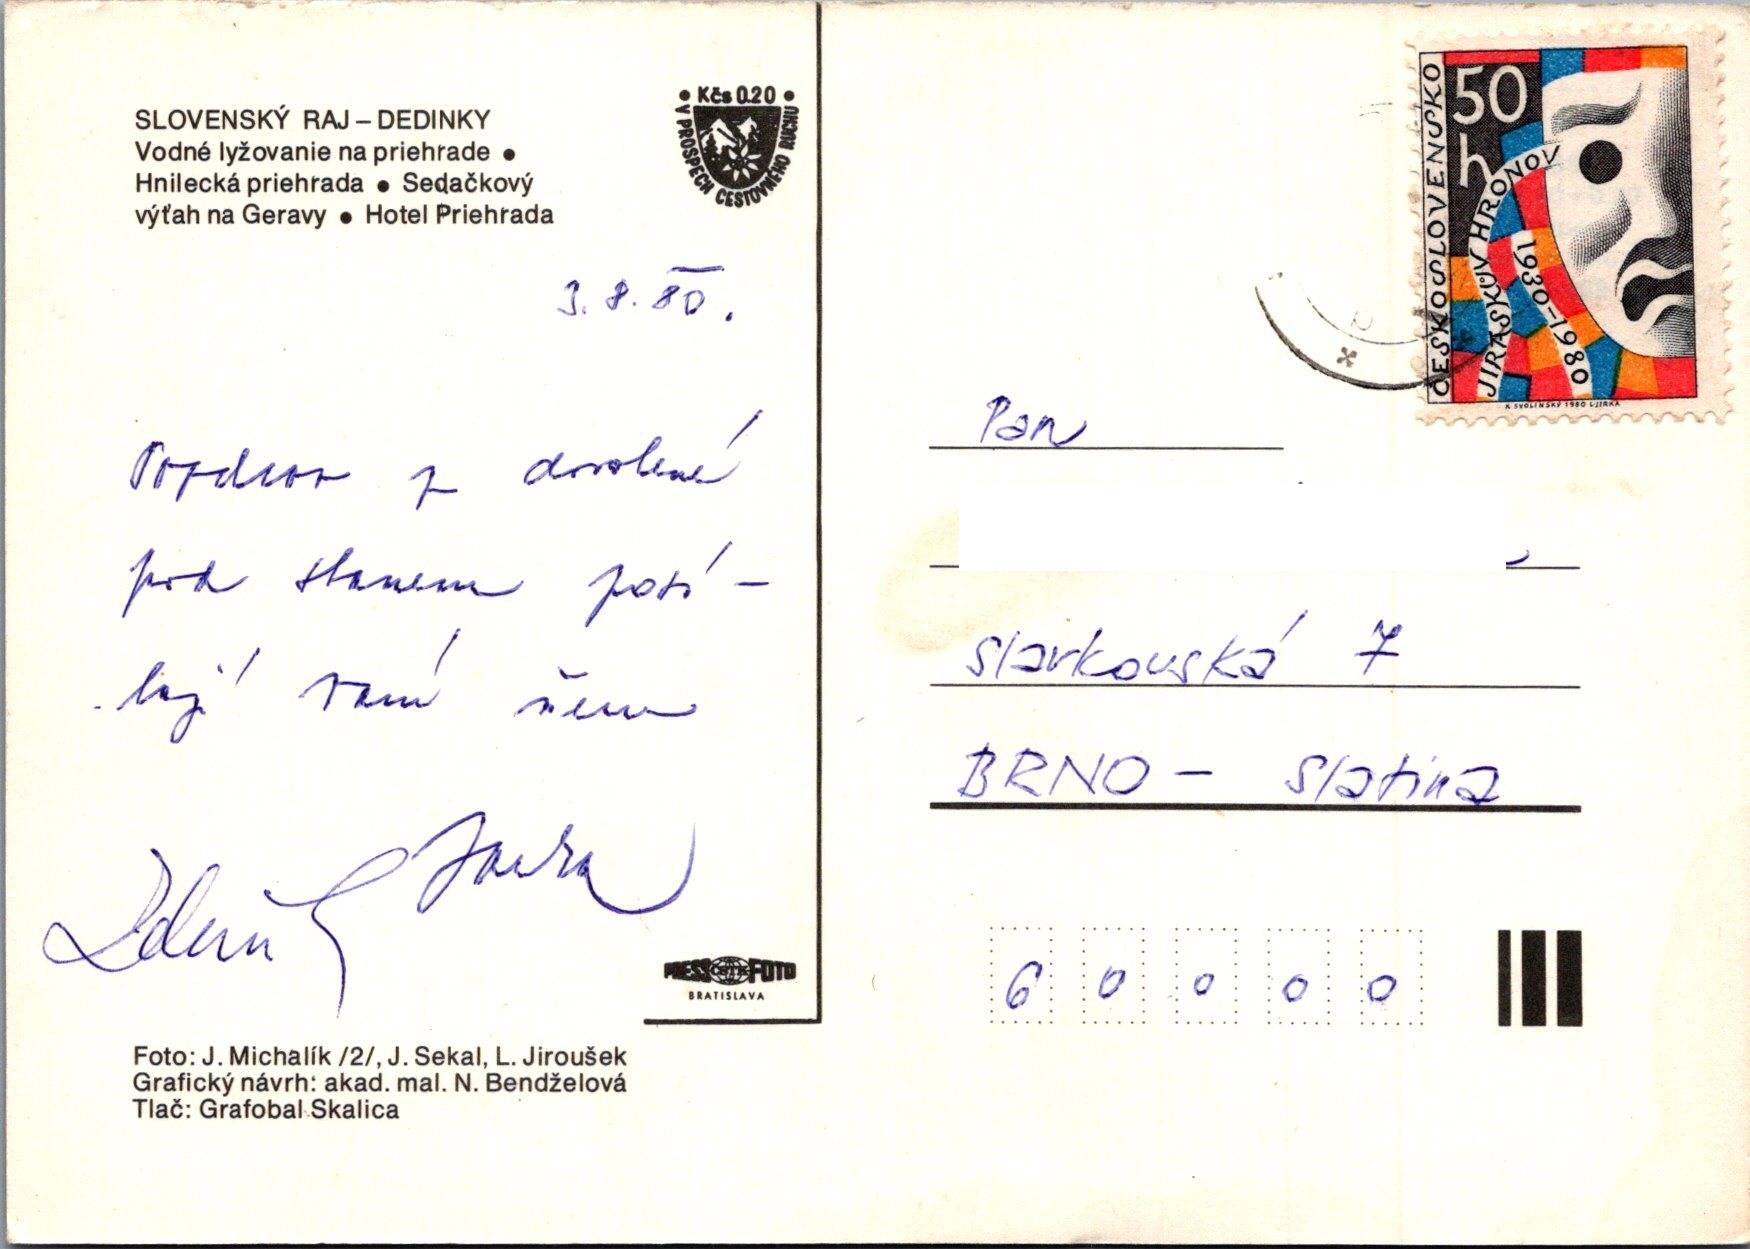 SLOVENSKÝ RAJ – DEDINKY
Vodné lyžovanie na priehrade •
Hnilecká priehrada • Sedačkový
výťah na Geravy • Hotel Priehrada
• Kčs 0.20 •
V PROSPECH CESTOVNÉHO RUCHU
3. 8. 80.
Pozdrav z dovolené
pod stanem posí-
lají Vám všem
Zdeněk
PRESSFOTO
BRATISLAVA
Foto: J. Michalík /2/, J. Sekal, L. Jiroušek
Grafický návrh: akad. mal. N. Bendželová
Tlač: Grafobal Skalica
ČESKOSLOVENSKO
50 h
JIRÁSKŮV HRONOV
1930–1980
K. SVOLINSKÝ 1980 L. JIRKA
Pan
Slavkovská 7
BRNO – Slatina
6 0 0 0 0